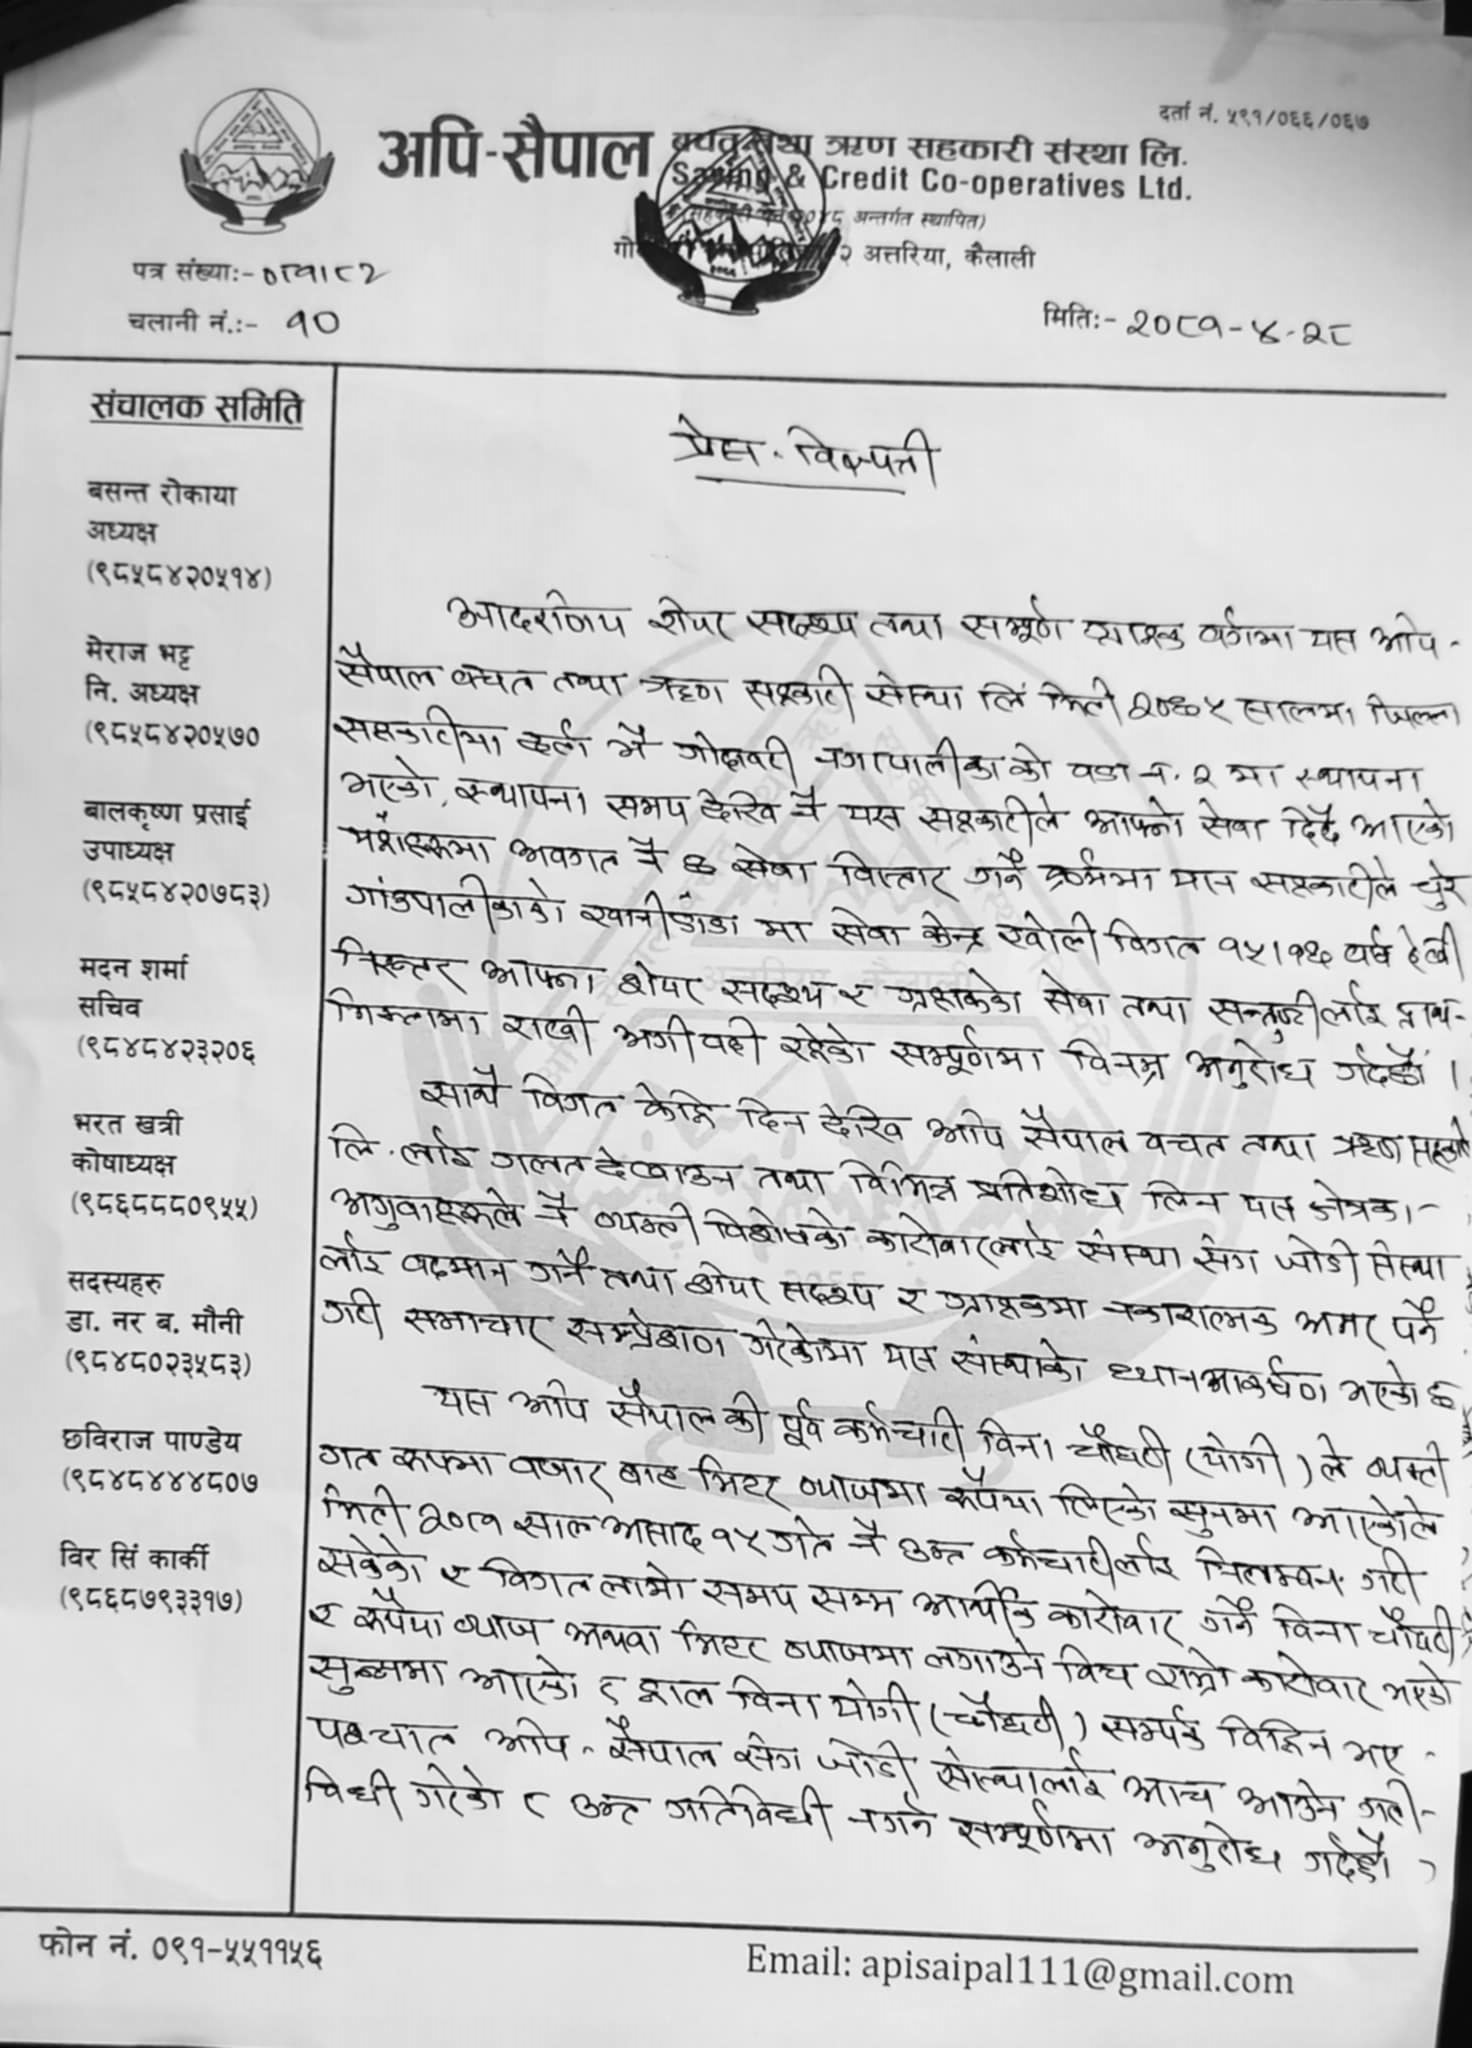 दर्ता नं. ५९१/०६६/०६७
अपि-सैपाल बचत तथा ऋण सहकारी संस्था लि.
Saving & Credit Co-operatives Ltd.
२०४८ अन्तर्गत स्थापित)
२ अत्तरिया, कैलाली
पत्र संख्या:- ०८१।८२
चलानी नं.:- १०
मिति:- २०८१-४-२८
संचालक समिति
बसन्त रोकाया
अध्यक्ष
(९८५८४२०५१४)
मेराज भट्ट
नि. अध्यक्ष
(९८५८४२०५७०
बालकृष्ण प्रसाई
उपाध्यक्ष
(९८५८४२०७८३)
मदन शर्मा
सचिव
(९८४८४२३२०६
भरत खत्री
कोषाध्यक्ष
(९८६८८८०९५५)
सदस्यहरु
डा. नर ब. मौनी
(९८४८०२३५८३)
छविराज पाण्डेय
(९८४८४४४८०७
विर सिं कार्की
(९८६८७९३३१७)
प्रेस - विज्ञप्ती
आदरणिय शेयर सदश्य तथा सम्पूर्ण ग्राहक वर्गमा यस अपि -
सैपाल वचत तथा ऋण सहकारी संस्था लि मिती २०६५ सालमा जिल्ला
सहकारीमा दर्ता भै गोदावरी नगरपालीका को वडा नं. २ मा स्थापना
भएको, स्थापना समय देखि नै यस सहकारीले आफ्नो सेवा दिदै आएको
अवगत नै छ सेवा विस्तार गर्ने क्रममा यस सहकारीले चुरे
गांउपालीकाको खानीडाँडा मा सेवा केन्द्र खोली विगत १५।१६ वर्ष देखी
निरन्तर आफ्ना शेयर सदश्य र ग्राहकको सेवा तथा सन्तुष्टीलाई प्राथ-
मिकतामा राखी अगी वढी रहेको सम्पूर्णमा विनम्र अनुरोध गर्दछौं ।
साथै विगत केहि दिन देखि अपि सैपाल वचत तथा ऋण सहकारी
लि. लाई गलत देखाउन तथा विभिन्न प्रतिशोध लिन यस क्षेत्रका -
अगुवाहरूले नै व्यक्ती विशेषको कारोवारलाई संस्था संग जोडी संस्था
लाई वदमान गर्ने तथा शेयर सदश्य र ग्राहकमा नकारात्मक असर पर्ने
गरी समाचार सम्प्रेषण गरेकोमा यस संस्थाको ध्यानआकर्षण भएको छ
यस अपि सैपाल की पूर्व कर्मचारी विना चौधरी (योगी) ले व्यक्ती
गत रूपमा वजार वाट मिटर व्याजमा रूपैया लिएको सुनमा आएकोले
मिती २०८१ साल असाद १५ गते नै उक्त कर्मचारीलाई निलम्वन गरी
सकेको र विगत लामो समय सम्म आर्थीक कारोवार गर्ने विना चौधरी
र रूपैया व्याज अथवा मिटर व्याजमा लगाउने विच राम्रो कारोवार भएको
सुन्नमा आएको र हाल विना योगी (चौधरी) सम्पर्क विहिन भए -
पश्चात अपि - सैपाल संग जोडी संस्थालाई आच आउने गती-
विधी गरेको र उक्त गतिविधी नगर्न सम्पूर्णमा अनुरोध गर्दछौं ,
फोन नं. ०९१-५५११५६
Email: apisaipal111@gmail.com